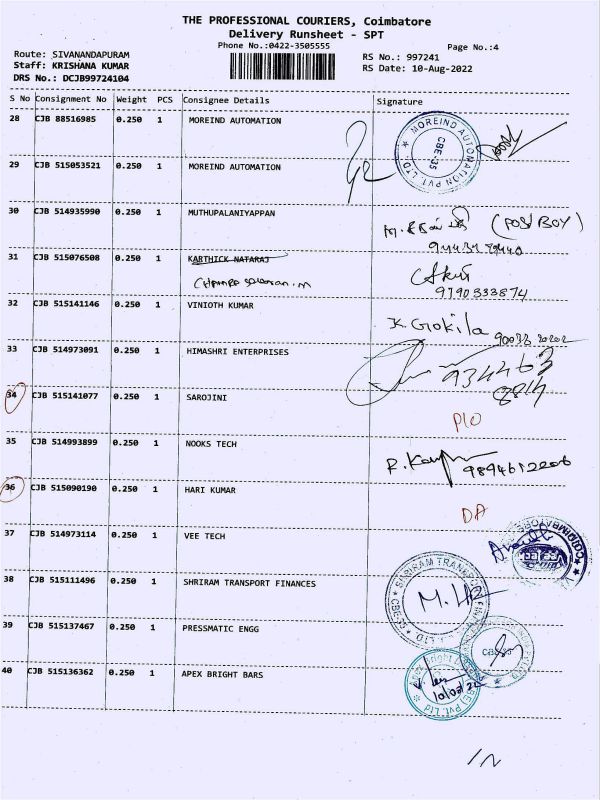 THE PROFESSIONAL COURIERS, Coimbatore
Delivery Runsheet - SPT
Phone No.:0422-3505555
Page No.:4
Route: SIVANANDAPURAM
Staff: KRISHANA KUMAR
DRS No.: DCJB99724104
RS No.: 997241
RS Date: 10-Aug-2022
S No Consignment No Weight PCS Consignee Details Signature
28 CJB 88516985 0.250 1 MOREIND AUTOMATION
MOREIND AUTOMATION PVT. LTD.
CBE-35
29 CJB 515053521 0.250 1 MOREIND AUTOMATION
30 CJB 514935990 0.250 1 MUTHUPALANIYAPPAN
(POST BOY)
31 CJB 515076508 0.250 1 KARTHICK NATARAJ
9790333874
32 CJB 515141146 0.250 1 VINIOTH KUMAR
K. Gokila
33 CJB 514973091 0.250 1 HIMASHRI ENTERPRISES
934463
8814
34 CJB 515141077 0.250 1 SAROJINI
P/O
35 CJB 514993899 0.250 1 NOOKS TECH
36 CJB 515090190 0.250 1 HARI KUMAR
DA
37 CJB 514973114 0.250 1 VEE TECH
COIMBATORE
38 CJB 515111496 0.250 1 SHRIRAM TRANSPORT FINANCES
39 CJB 515137467 0.250 1 PRESSMATIC ENGG
40 CJB 515136362 0.250 1 APEX BRIGHT BARS